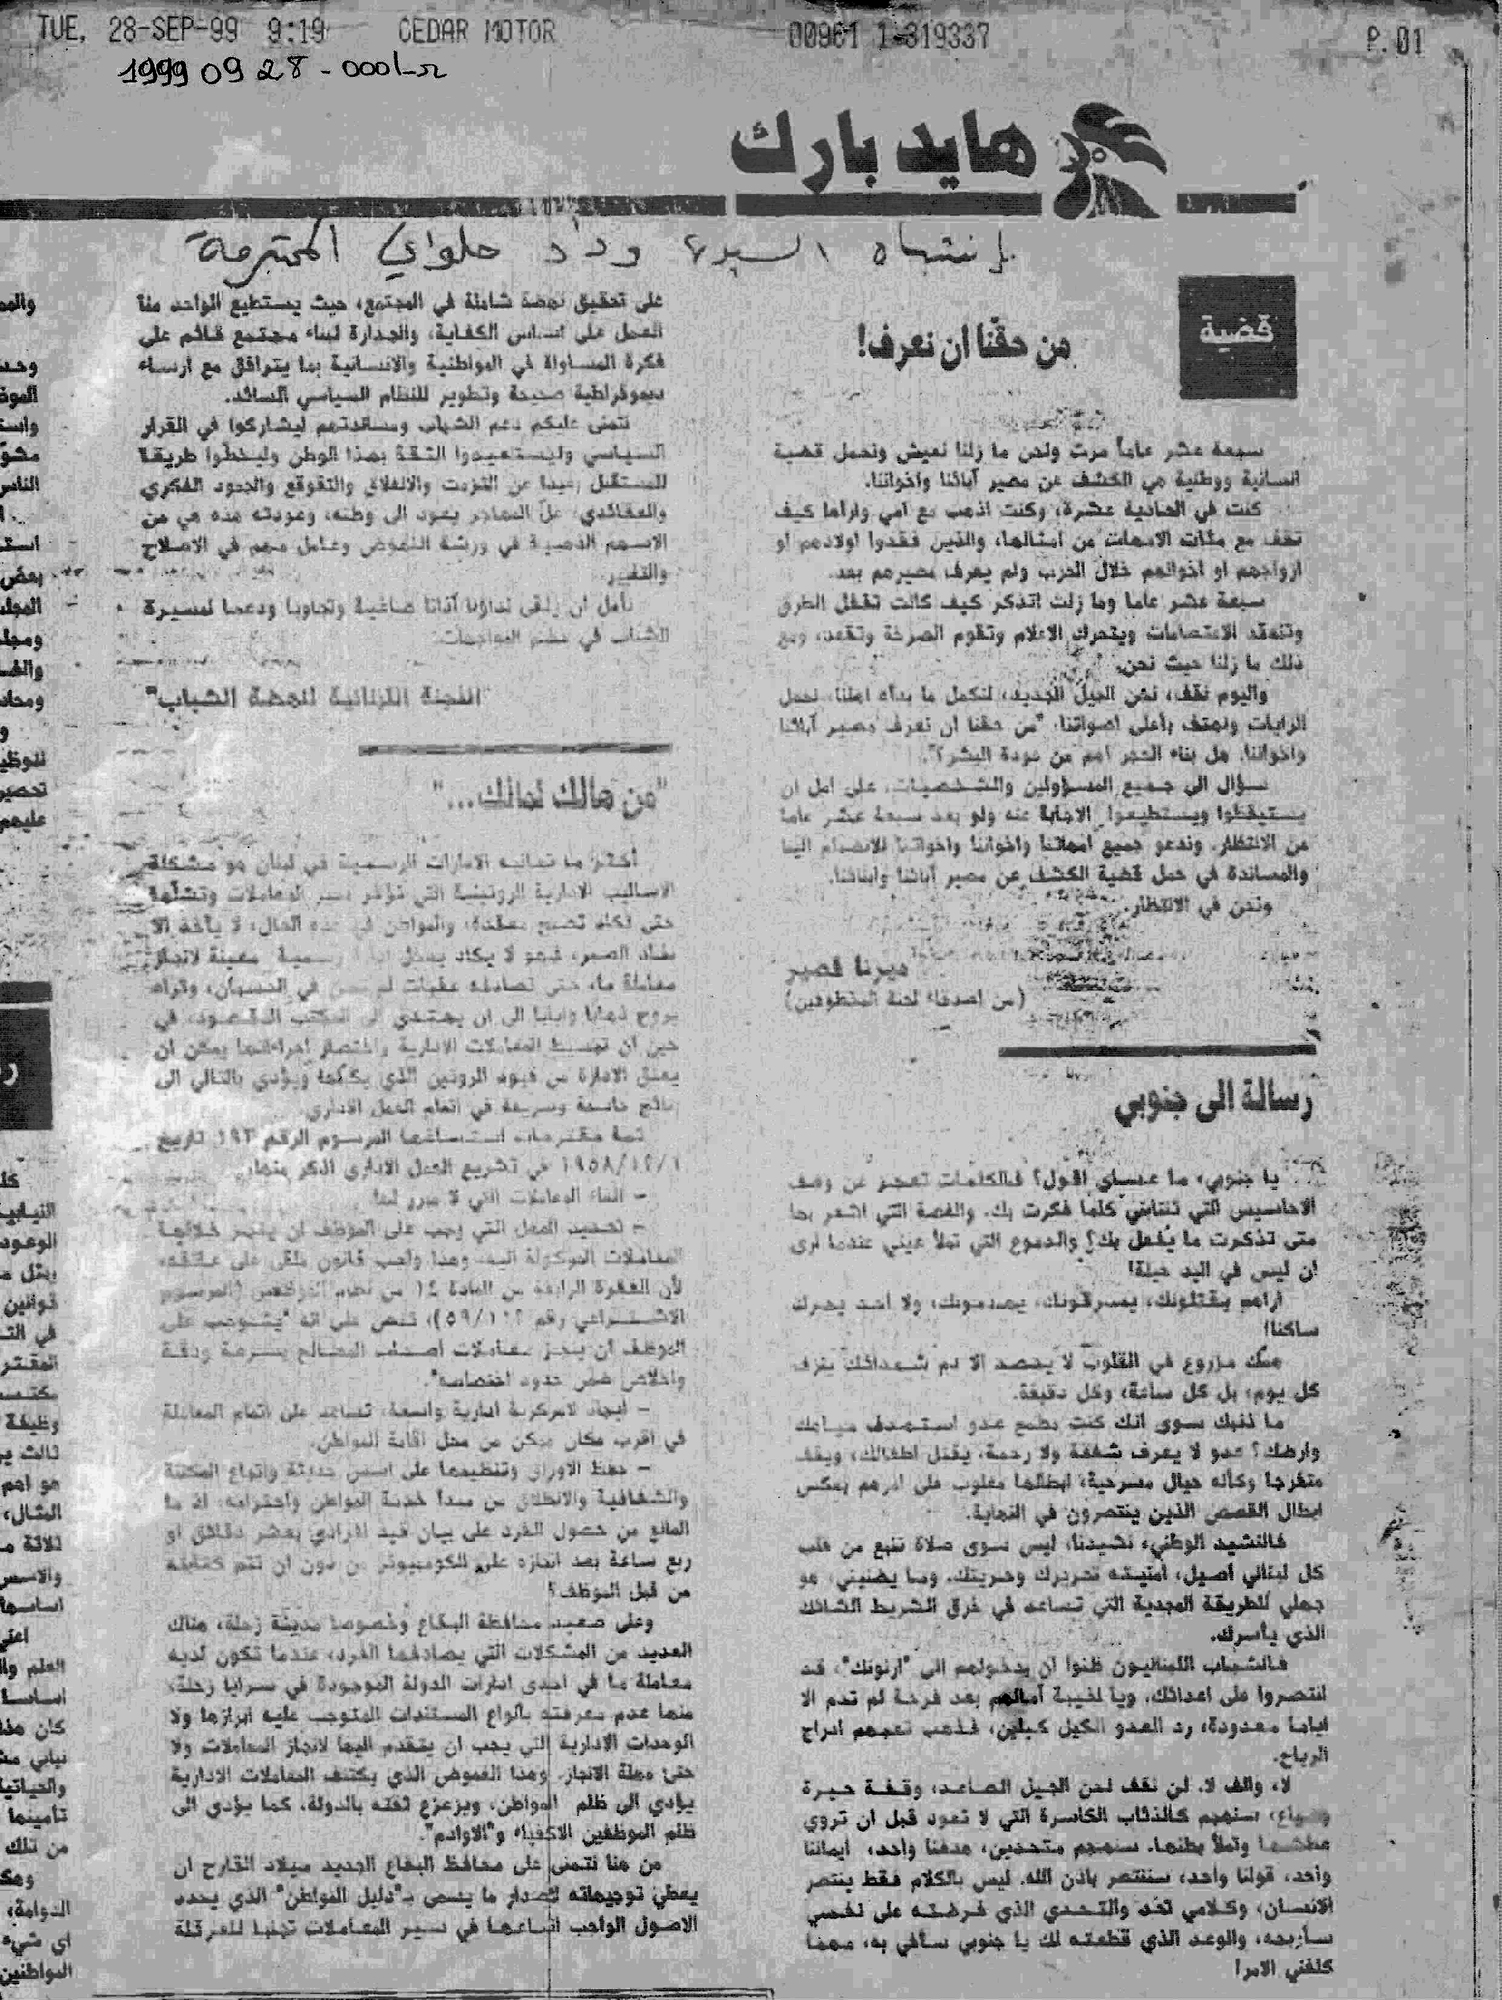 TUE, 28-SEP-99 9:19 CEDAR MOTOR 00961 1-819337 P.01
1999 09 28 - 0001-Ω
هايد بارك
إنتباه السيدة وداد حلواني المحترمة
قضية
من حقّنا ان نعرف!
سبعة عشر عاماً مرت ونحن ما زلنا نعيش ونحمل قضية
انسانية ووطنية هي الكشف عن مصير آبائنا واخواننا.
كنت في الحادية عشرة، وكنت اذهب مع امي واراها كيف
تقف مع مئات الامهات من امثالها، والذين فقدوا اولادهم او
ازواجهم او اخوانهم خلال الحرب ولم يعرف مصيرهم بعد.
سبعة عشر عاما وما زلت اتذكر كيف كانت تقفل الطرق
وتنعقد الاعتصامات ويتحرك الاعلام وتقوم الصرخة وتقعد، ومع
ذلك ما زلنا حيث نحن.
واليوم نقف، نحن الجيل الجديد، لنكمل ما بدأه اهلنا، نحمل
الرايات ونهتف بأعلى اصواتنا. "من حقنا ان نعرف مصير آبائنا
واخواننا. هل بناء الحجر اهم من عودة البشر؟".
سؤال الى جميع المسؤولين والشخصيات، على امل ان
يستيقظوا ويستطيعوا الاجابة عنه ولو بعد سبعة عشر عاما
من الانتظار. وندعو جميع امهاتنا واخواننا واخواتنا للانضمام الينا
والمساندة في حمل قضية الكشف عن مصير آبائنا وابنائنا.
ونحن في الانتظار.
ميرنا قصير
(من اصدقاء لجنة المخطوفين)
رسالة الى جنوبي
يا جنوبي، ما عساي اقول؟ فالكلمات تعجز عن وصف
الاحاسيس التي تنتابني كلما فكرت بك. والغصة التي اشعر بها
متى تذكرت ما يُفعل بك؟ والدموع التي تملأ عيني عندما ارى
ان ليس في اليد حيلة!
اراهم يقتلونك، يسرقونك، يهدمونك، ولا احد يحرك
ساكنا!
همّك مزروع في القلوب لا يحصد الا دم شهدائك ينزف
كل يوم، بل كل ساعة، وكل دقيقة.
ما ذنبك سوى انك كنت مطمع عدو استهدف مياهك
وارضك؟ عدو لا يعرف شفقة ولا رحمة، يقتل اطفالك، ويقف
متفرجا وكأنه حيال مسرحية، ابطالها مغلوب على امرهم بعكس
ابطال القصص الذين ينتصرون في النهاية.
فالنشيد الوطني، نشيدنا، ليس سوى صلاة تنبع من قلب
كل لبناني اصيل، امنيته تحريرك وحريتك. وما يضنيني، هو
جهلي للطريقة المجدية التي تساعد في خرق الشريط الشائك
الذي يأسرك.
فالشباب اللبنانيون ظنوا ان بدخولهم الى "ارنون"، قد
انتصروا على اعدائك. ويا لخيبة آمالهم بعد فرحة لم تدم الا
اياما معدودة، رد العدو الكيل كيلين، فذهب تعبهم ادراج
الرياح.
لا، والف لا. لن نقف نحن الجيل الصاعد، وقفة حيرة
وضياع، سنهجم كالذئاب الكاسرة التي لا تعود قبل ان تروي
عطشها وتملأ بطنها. سنهجم متحدين، هدفنا واحد، ايماننا
واحد، قولنا واحد، سننتصر باذن الله. ليس بالكلام فقط ينتصر
الانسان، وكلامي تحد والتحدي الذي فرضته على نفسي
سأربحه، والوعد الذي قطعته لك يا جنوبي سأفي به، مهما
كلفني الامر!
على تحقيق نهضة شاملة في المجتمع، حيث يستطيع الواحد منا
العمل على اساس الكفاية، والجدارة لبناء مجتمع قائم على
فكرة المساواة في المواطنية والانسانية بما يترافق مع ارساء
ديموقراطية صحيحة وتطوير للنظام السياسي السائد.
نتمنى عليكم دعم الشباب ومساندتهم ليشاركوا في القرار
السياسي وليستعيدوا الثقة بهذا الوطن وليخطّوا طريقا
للمستقبل بعيدا عن التزمت والانغلاق والتقوقع والجمود الفكري
والعقائدي، علّ المهاجر يعود الى وطنه، وعودته هذه هي من
الاسهم الذهبية في ورشة النهوض وعامل مهم في الاصلاح
والتغيير.
نأمل ان يلقى نداؤنا آذانا صاغية وتجاوبا ودعما لمسيرة
الشباب في خضم المواجهات.
"اللجنة اللبنانية لنهضة الشباب"
"من هالك لمالك..."
أكثر ما تعانيه الادارات الرسمية في لبنان هو مشكلة
الاساليب الادارية الروتينية التي تؤخر سير المعاملات وتشلّها
حتى تكاد تصبح معقدة، والمواطن في هذه الحال، لا يأخذ الا
نفاد الصبر، فهو لا يكاد يدخل رسمية معينة لانجاز
معاملة ما، حتى تصادفه عقبات لم تكن في الحسبان، وتراه
يروح ذهابا وايابا الى ان يهتدي الى المكتب المقصود، في
حين ان تبسيط المعاملات الادارية واختصار اجراءاتها يمكن ان
يعتق الادارة من قيود الروتين الذي يكبّلها ويؤدي بالتالي الى
نتائج حاسمة وسريعة في اتمام العمل الاداري.
ثمة مقترحات المرسوم الرقم تاريخ
في تشريع العمل الاداري اذكر منها:
- الغاء المعاملات التي لا مبرر لها.
- تحديد المهل التي يجب على الموظف ان ينجز خلالها
المعاملات الموكولة اليه. وهذا واجب قانون ملقى على عاتقه،
لأن الفقرة الرابعة من المادة ١٤ من نظام الموظفين (المرسوم
الاشتراعي رقم ٥٩/١١٢)، تنص على انه "يتوجب على
الموظف أن ينجز معاملات أصحاب المصالح بسرعة ودقة
واخلاص ضمن حدود اختصاصه".
- ايجاد لامركزية ادارية واسعة، تساعد على اتمام المعاملة
في اقرب مكان ممكن من محل اقامة المواطن.
- حفظ الاوراق وتنظيمها على اسس حديثة واتباع المكننة
والشفافية والانطلاق من مبدأ خدمة المواطن واحترامه، اذ ما
المانع من حصول الفرد على بيان قيد افرادي بعشر دقائق او
ربع ساعة بعد انجازه على الكومبيوتر من دون ان تتم كتابته
من قبل الموظف؟
وعلى صعيد محافظة البقاع وخصوصا مدينة زحلة، هناك
العديد من المشكلات التي يصادفها الفرد، عندما تكون لديه
معاملة ما في احدى ادارات الدولة الموجودة في سرايا زحلة،
منها عدم معرفته بأنواع المستندات المتوجب عليه ابرازها ولا
الوحدات الادارية التي يجب ان يتقدم اليها لانجاز المعاملات ولا
حتى مهلة الانجاز. وهذا الغموض الذي يكتنف المعاملات الادارية
يؤدي الى ظلم المواطن، ويزعزع ثقته بالدولة، كما يؤدي الى
ظلم الموظفين الاكفياء و"الاوادم".
من هنا نتمنى على محافظ البقاع الجديد ميلاد القارح ان
يعطي توجيهاته لاصدار ما يسمى بـ"دليل المواطن" الذي يحدد
الاصول الواجب اتباعها في سير المعاملات تجنبا للعرقلة